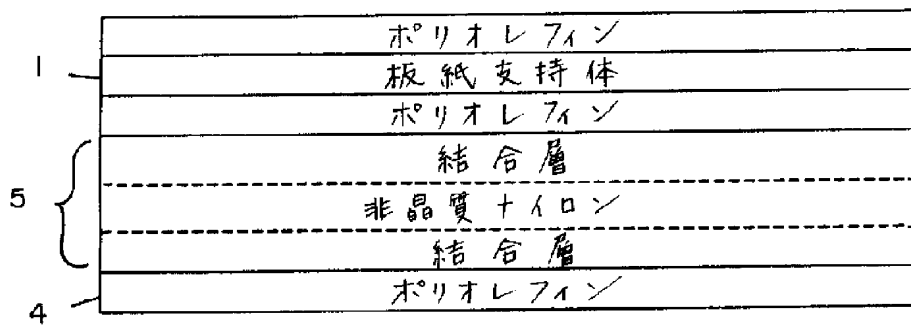 ポリオレフィン
1
板紙支持体
ポリオレフィン
結合層
5
非晶質ナイロン
結合層
ポリオレフィン
4